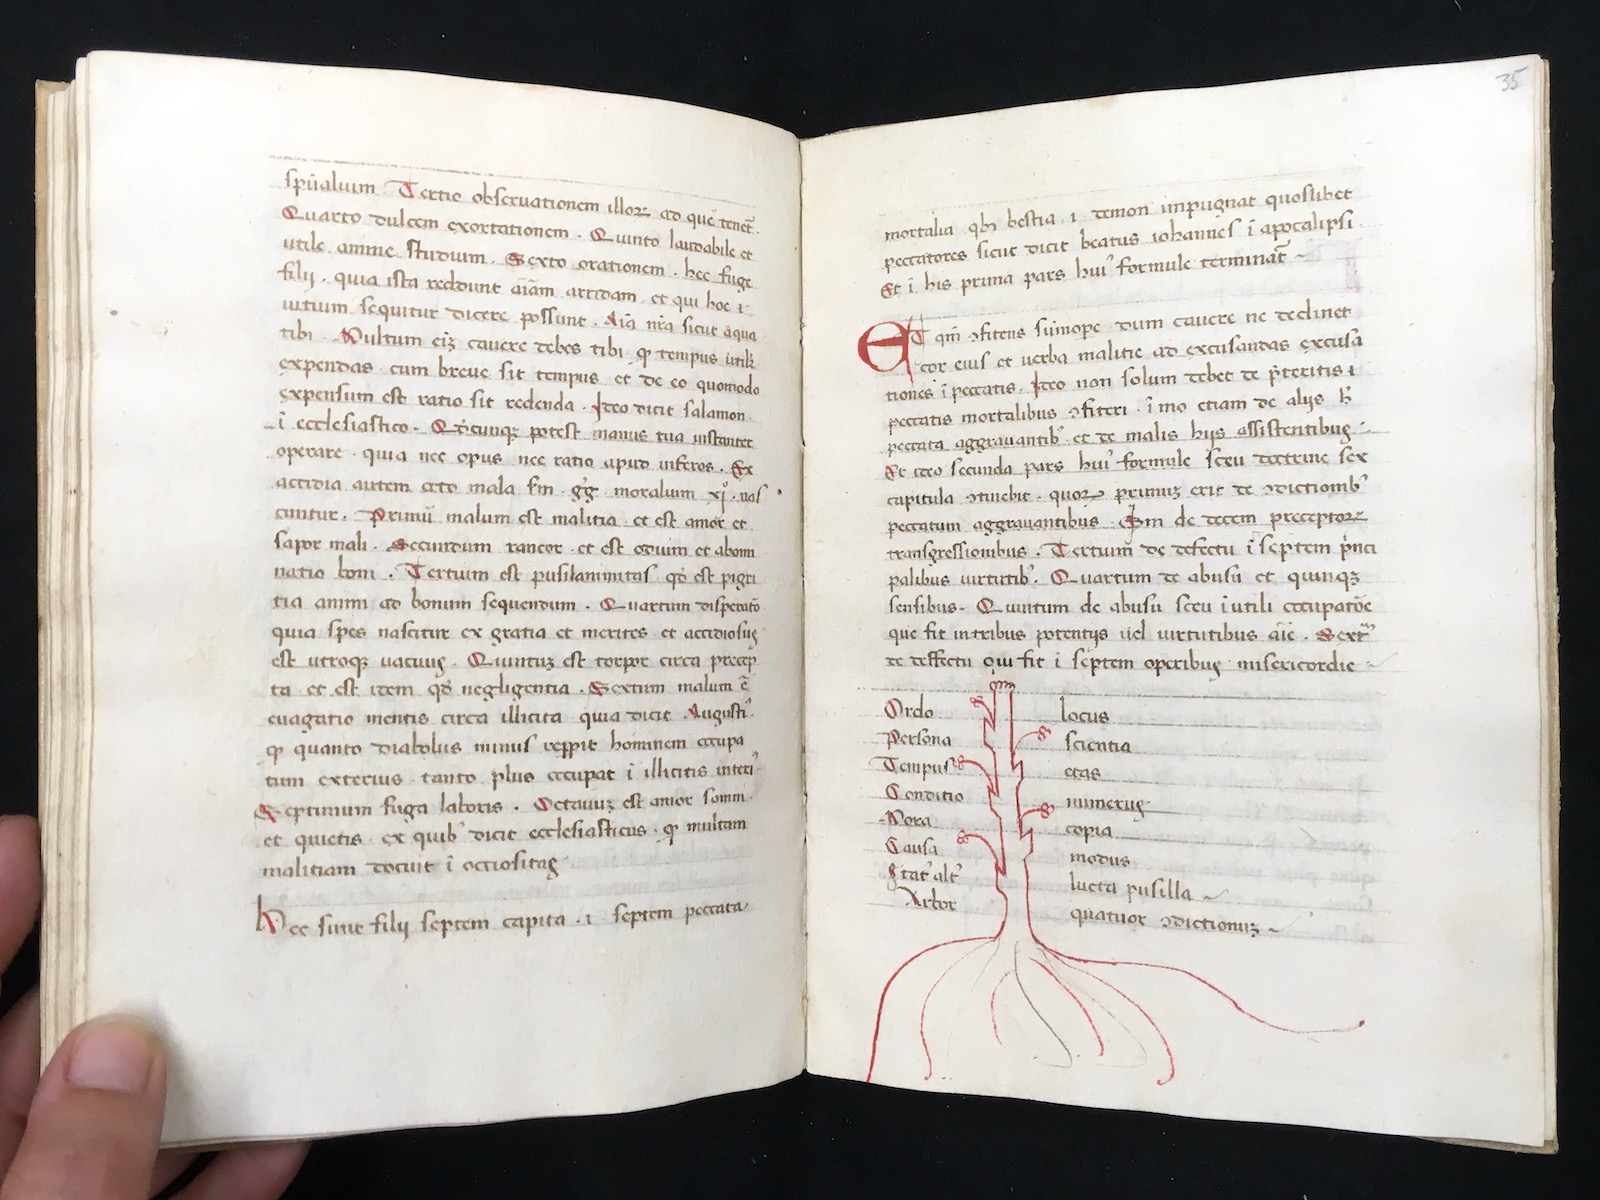 spūalium Tertio observationem illoꝝ ad quē tenet̄.
Quarto dulcem exortationem. Quinto laudabile et
utile anime studium. Sexto orationem. hec fuge
filii. quia ista reddunt aīam aridam et qui hoc
uitium sequitur dicere possunt. Aīa nr̄a sicut aqua
tibi. Multum eīz cavere debes tibi qꝫ tempus utilꝫ
expendas cum breve sit tempus et de eo quomodo
expensum est ratio sit redenda. Ideo dicit salamon
ī ecclesiastico. potest manus tua instanter
operare quia nec opus nec ratio apud inferos. Ex
accidia autem octo mala moralium nas
cuntur. Primū malum est malitia et est amor et
sapor mali. Secundum rancor et est odium et abom
natio boni. Tertium est pusilanimitas qd̄ est pigri
tia animi ad bonum sequendum. Quartum
quia spes nascitur ex gratia et meritis et accidiosus
est utroqꝫ vacuus. Quintuz est torpor circa precep
ta et est idem qd̄ negligentia. Sextum malum ē
euagatio mentis circa illicita quia dicit Augusti'.
qꝫ quanto diabolus minus hominem occupa
tum exterius tanto plus occupat ī illicitis interi'
Septimum fuga laboris. Octavuz est amor somni
et quietis ex quibꝰ dicit ecclesiasticus qꝫ multam
malitiam docuit ī occiositas
Hec sunt filii septem capita .i. septem peccata
35
mortalia bestia .i. demon impugnat quoslibet
peccatores sicut dicit beatus iohannes ī apocalipsi.
Et ī his prima pars huiꝰ formule terminat̄
ET ꝯfitens sūmope dum cavere ne declinet
cor eius et verba malitie ad excusandas excusa
tiones ī peccatis. Ideo non solum debet de p̄teritis
peccatis mortalibus ꝯfiteri. ī mo etiam de aliis
peccata aggravantibꝰ et de malis hiis assistentibus
Et ideo secunda pars huiꝰ formule sceu doctrine sex
capitula ꝯtinebit. quoꝝ primuz erit de ꝯdictionibꝰ
peccatum aggravantibus. de decem preceptoꝝ
transgressionibus. Tertium de defectu ī septem p̄nci
palibus virtutibꝰ. Quartum de abusu et quinqꝫ
sensibus. Quintum de abusu sceu īutili occupatōe
que fit in tribus potentiis vel virtutibus aīe.
de deffectu qui fit ī septem operibus misericordie
Ordo locus
Persona scientia
Tempus etas
Conditio numerus
Mora copia
Causa modus
lucta pusilla
Arbor quatuor ꝯdictionuz